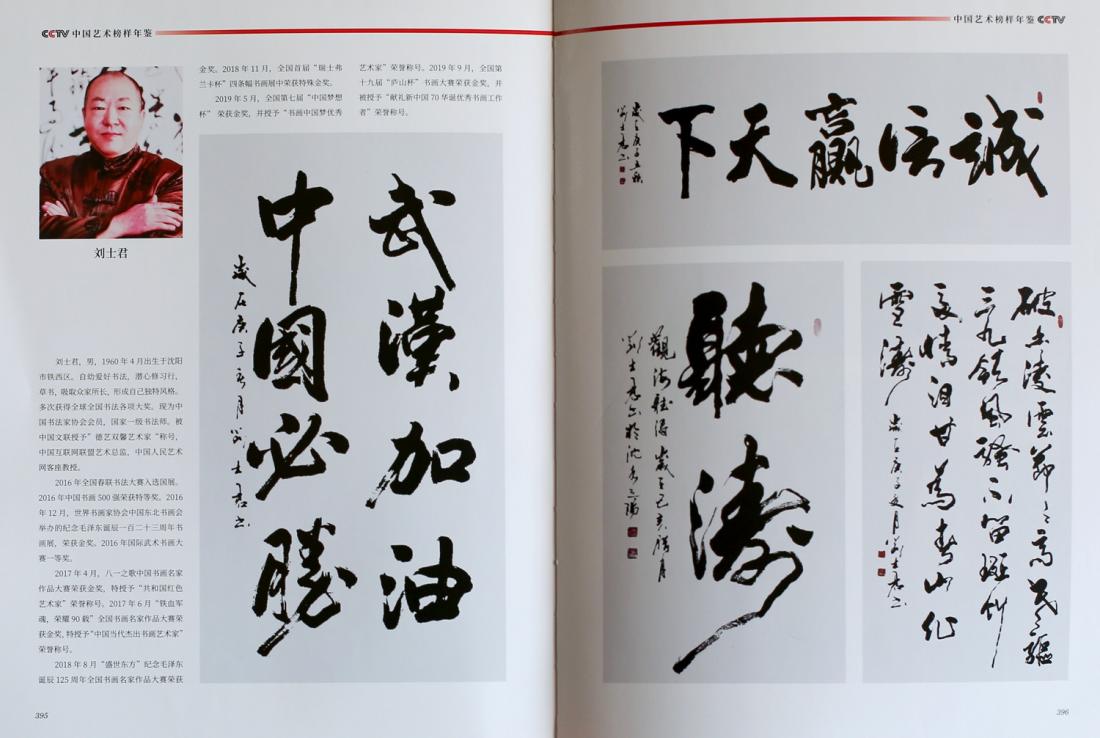 CCTV 中国艺术榜样年鉴
刘士君
刘士君，男，1960 年 4 月出生于沈阳
市铁西区。自幼爱好书法，潜心修习行，
草书，吸取众家所长，形成自己独特风格。
多次获得全球全国书法各项大奖。现为中
国书法家协会会员，国家一级书法师。被
中国文联授予”德艺双馨艺术家“称号，
中国互联网联盟艺术总监，中国人民艺术
网客座教授。
2016 年全国春联书法大赛入选国展。
2016 年中国书画 500 强荣获特等奖。2016
年 12 月，世界书画家协会中国东北书画会
举办的纪念毛泽东诞辰一百二十三周年书
画展，荣获金奖。2016 年国际武术书画大
赛一等奖。
2017 年 4 月，八一之歌中国书画名家
作品大赛荣获金奖，特授予“共和国红色
艺术家”荣誉称号。2017 年 6 月“铁血军
魂，荣耀 90 载”全国书画名家作品大赛荣
获金奖,特授予“中国当代杰出书画艺术家”
荣誉称号。
2018 年 8 月“盛世东方”纪念毛泽东
诞辰 125 周年全国书画名家作品大赛荣获
金奖。2018 年 11 月，全国首届“瑞士弗
兰卡杯”四条幅书画展中荣获特殊金奖。
2019 年 5 月，全国第七届“中国梦想
杯” 荣获金奖，并授予“书画中国梦优秀
艺术家”荣誉称号。2019 年 9 月，全国第
十九届“庐山杯”书画大赛荣获金奖，并
被授予“献礼新中国 70 华诞优秀书画工作
者”荣誉称号。
武漢加油
中國必勝
395
中国艺术榜样年鉴 CCTV
誠信贏天下
聽濤
觀海聽濤 歲
破土凌雲節節高
三九領風騷不留斑竹
哀情淚甘為青山化
雪濤
396